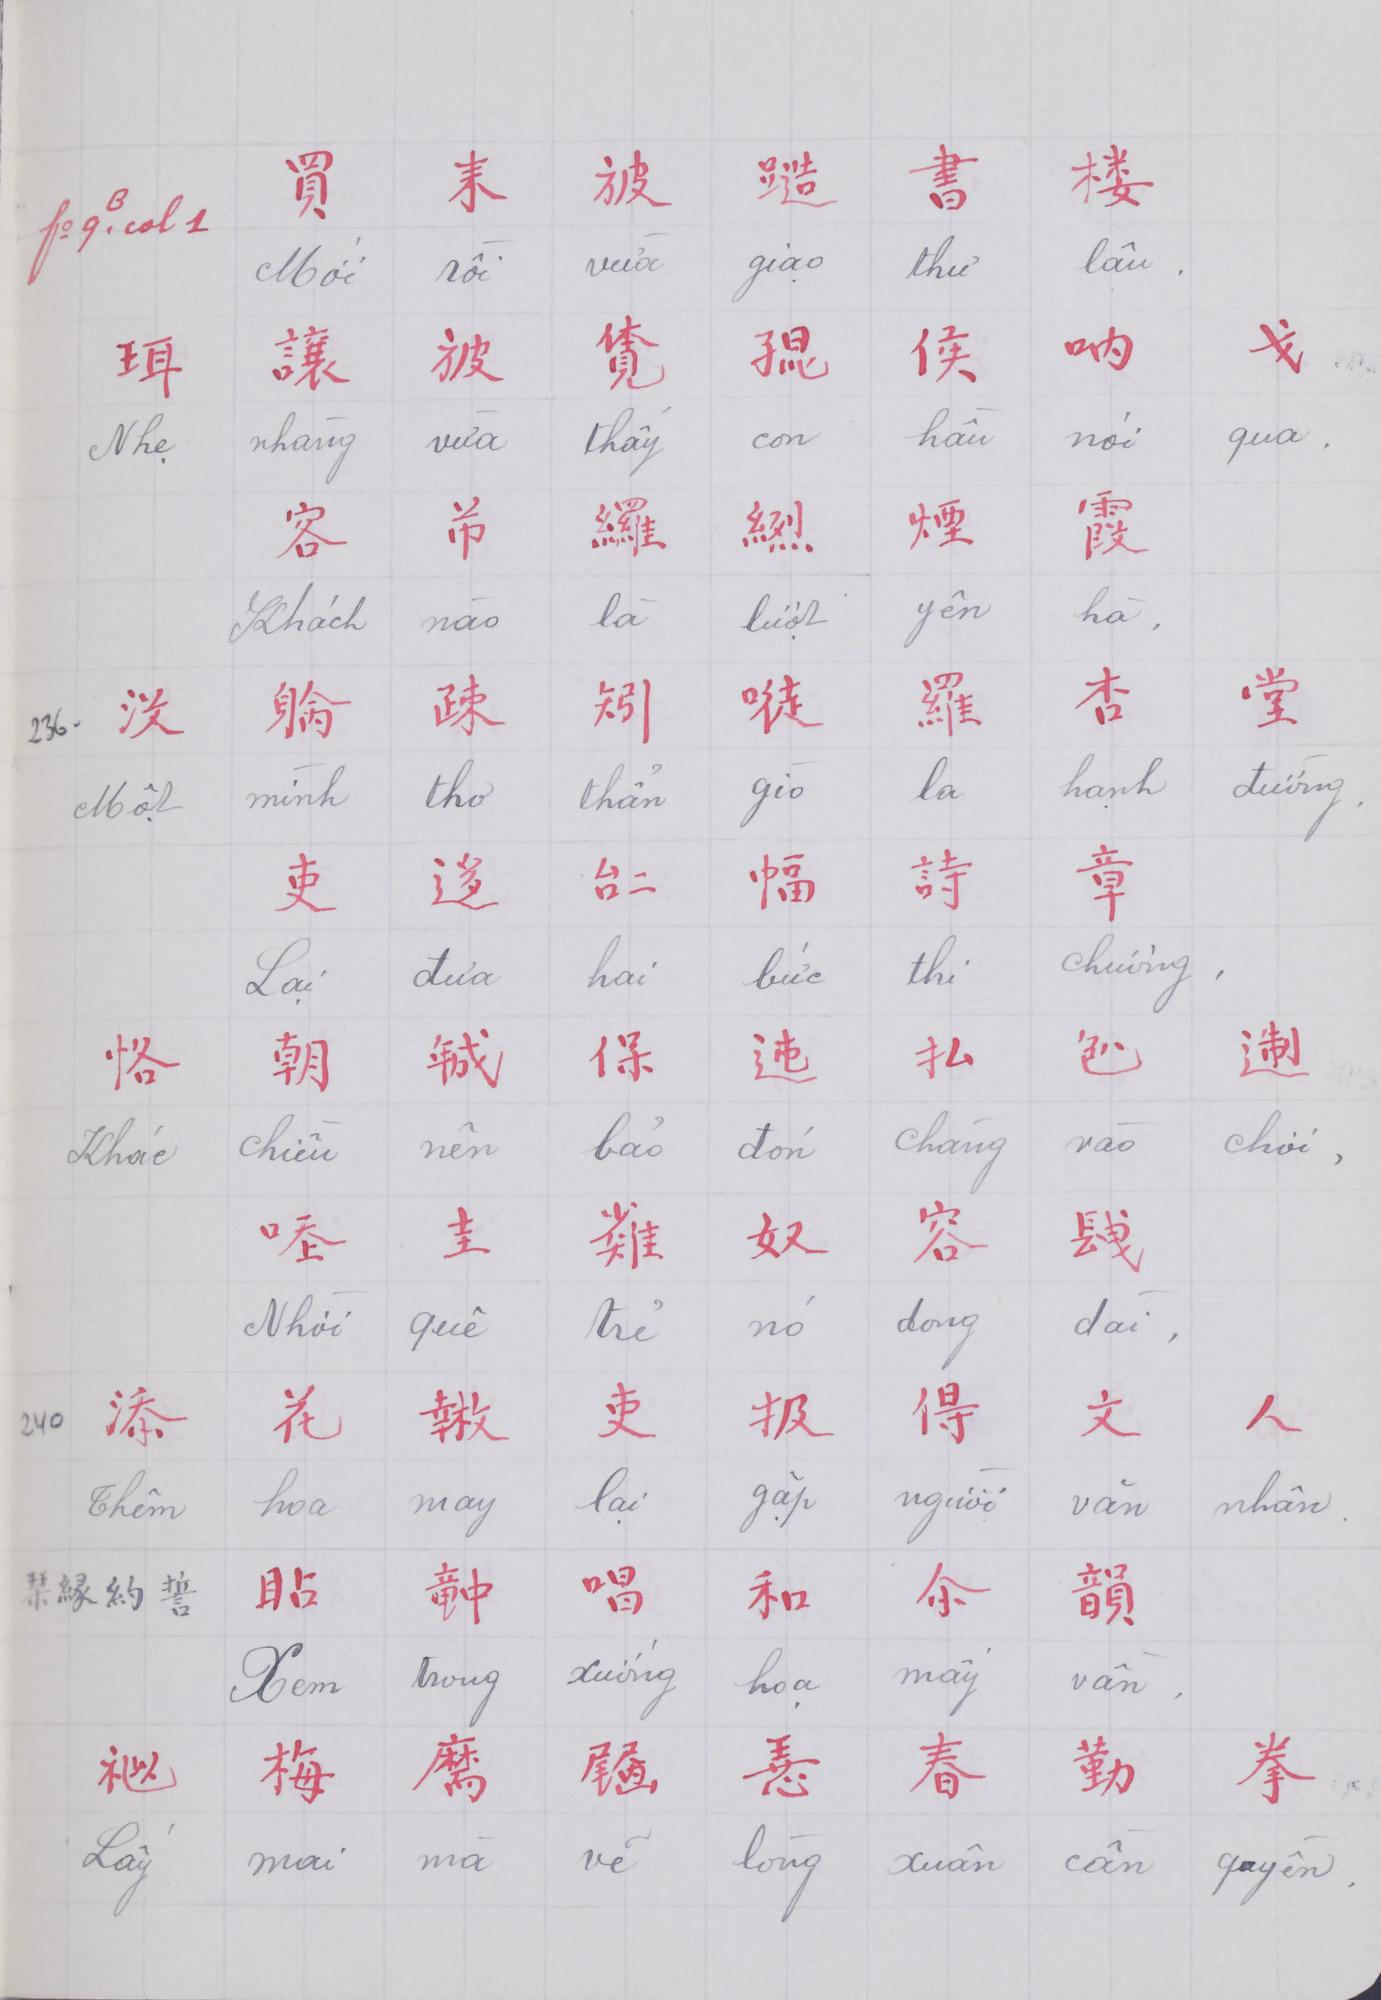 fo 9.B col 1 買 耒 𣃣 𨔍 書 楼
Mới rồi vừa giạo thư lâu.
珥 讓 𣃣 覽 𡥵 侯 吶 戈
Nhẹ nhàng vừa thấy con hầu nói qua.
容 芇 羅 煙 霞
Khách nào là lượt yên hà,
236- 沒 疎 矧 唗 羅 杏 堂
Một mình thơ thẩn giò la hạnh đường,
吏 迻 𠄩 幅 詩 章
Lại đưa hai bức thi chương,
恪 朝 𢧚 保 迍 払 𠓨 𨔾
Khác chiều nên bảo đón chàng vào chơi,
圭 奴 容 𨱽
Nhời quê trẻ nó dong dài,
240 添 花 吏 扱 得 文 人
Thêm hoa may lại gặp người văn nhân.
琴 緣 約 誓 䀡 𥪝 唱 和 余 韻
Xem trong xướng họa mấy vần,
𥙩 梅 𢚸 春 勤 拳
Lấy mai mà vẽ lòng xuân cần quyền.